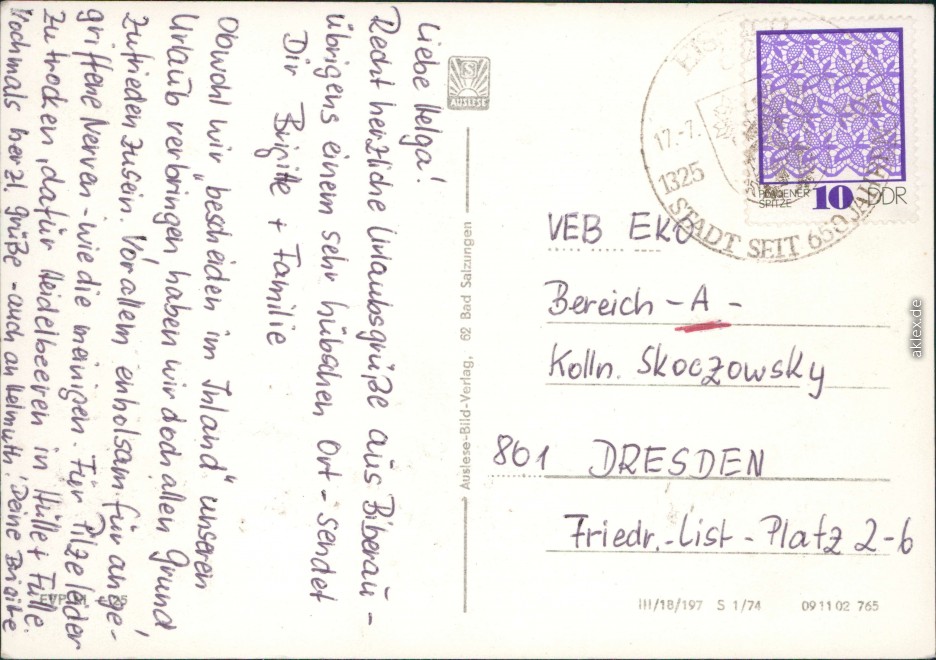 Liebe Helga!
Recht herzliche Urlaubsgrüße aus Biberau -
übrigens einem sehr hübschen Ort - sendet
Dir Brigitte + Familie
Obwohl wir "bescheiden im Inland" unseren
Urlaub verbringen, haben wir doch allen Grund
zufrieden zu sein. Vor allem erholsam für ange-
griffene Nerven - wie die meinigen. Für Pilze leider
zu trocken, dafür Heidelbeeren in Hülle + Fülle.
Nochmals herzl. Grüße - auch an Helmuth! Deine Brigitte
AUSLESE
Auslese-Bild-Verlag, 62 Bad Salzungen
17.-7.
1325
STADT SEIT 650 JAHREN
PLAUENER
SPITZE
10 DDR
VEB EKO
Bereich - A -
Kolln. Skoczowsky
801 DRESDEN
Friedr.-List-Platz 2-6
III/18/197 S 1/74 09 11 02 765
aklex.de